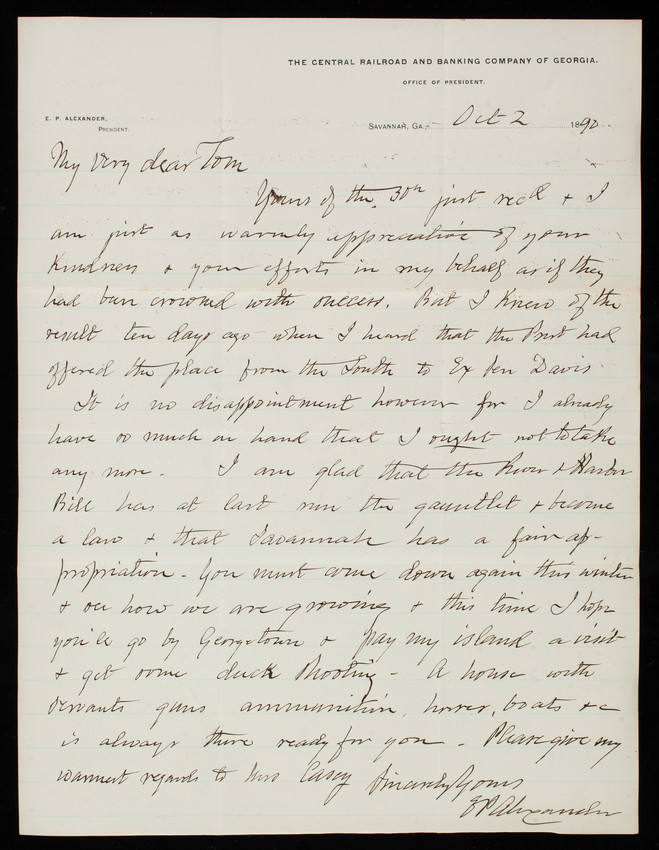 THE CENTRAL RAILROAD AND BANKING COMPANY OF GEORGIA.
OFFICE OF PRESIDENT.
E. P. ALEXANDER,
PRESIDENT.
SAVANNAH, GA., Oct 2 1890
My very dear Tom
Yours of the 30th just recd & I
am just as warmly appreciative of your
kindness & your efforts in my behalf as if they
had been crowned with success. But I knew of the
result ten days ago when I heard that the Prest had
offered the place from the South to Ex Sen Davis
It is no disappointment however for I already
have so much on hand that I ought not to take
any more. I am glad that the River & Harbor
Bill has at last run the gauntlet & become
a law & that Savannah has a fair ap-
propriation. You must come down again this winter
& see how we are growing & this time I hope
you'll go by Georgetown & pay my island a visit
& get some duck shooting - A house with
servants guns ammunition, horses, boats &c
is always there ready for you. Please give my
warmest regards to Mrs Casey Sincerely Yours
E P Alexander